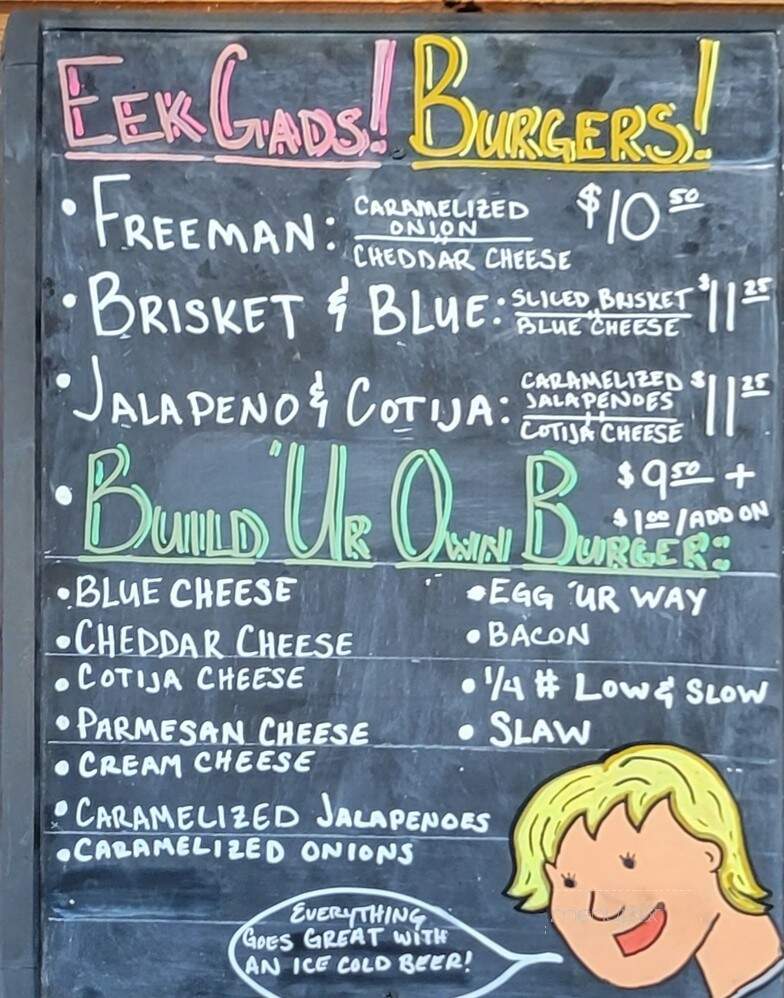 EEK GADS! BURGERS!
• FREEMAN: CARAMELIZED ONION CHEDDAR CHEESE $10 50
• BRISKET & BLUE: SLICED BRISKET BLUE CHEESE $11 25
• JALAPENO & COTIJA: CARAMELIZED JALAPENOES COTIJA CHEESE $11 25
• BUIILD 'UR OWN BURGER: $9 50 +
$1 00 / ADD ON
• BLUE CHEESE
• CHEDDAR CHEESE
• COTIJA CHEESE
• PARMESAN CHEESE
• CREAM CHEESE
• CARAMELIZED JALAPENOES
• CARAMELIZED ONIONS
• EGG 'UR WAY
• BACON
• 1/4 # LOW & SLOW
• SLAW
EVERYTHING
GOES GREAT WITH
AN ICE COLD BEER!